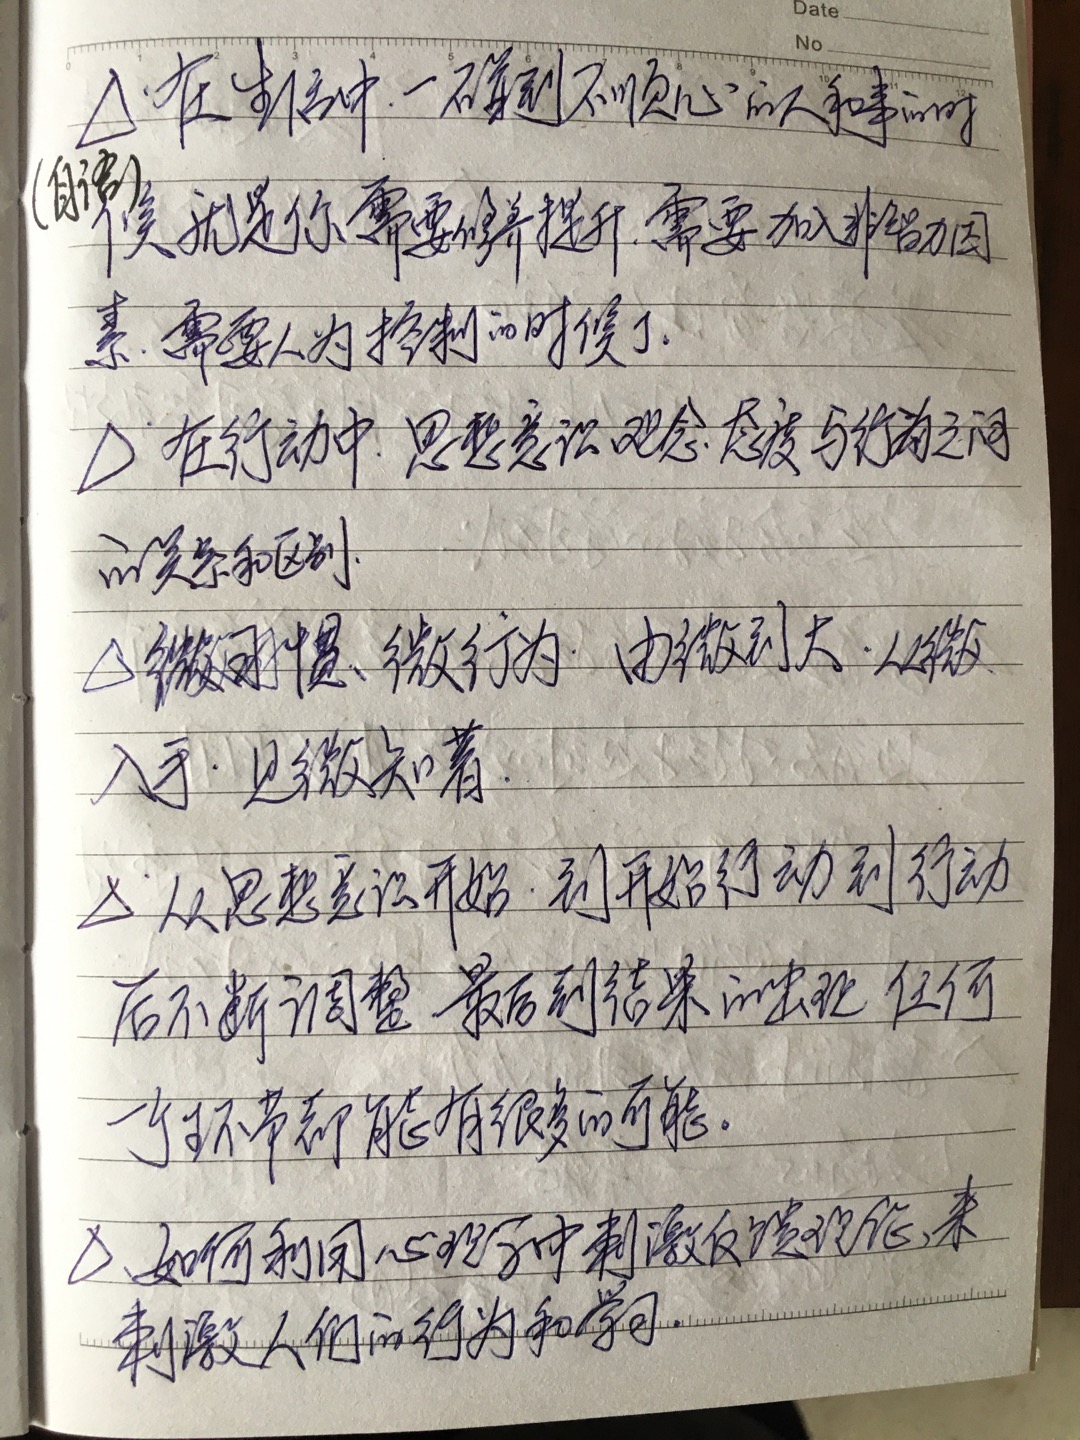 Date
No
0 1 2 3 4 5 6 7 8 9 10 11 12
△·在生活中.一不碰到不顺心的人和事的时
(自语)
候就是你需要修养提升.需要加入非智力因
素.需要人为控制的时候了.
△·在行动中.思想意识观念.态度与行为之间
的关系和区别.
△微习惯、微行为.由微到大.从微
入手.见微知著.
△·从思想意识开始.到开始行动到行动
后不断调整 最后到结果的出现 任何
一个环节都能有很多的可能.
△、如何利用心理学中刺激反馈理论,来
刺激人们的行为和学习.